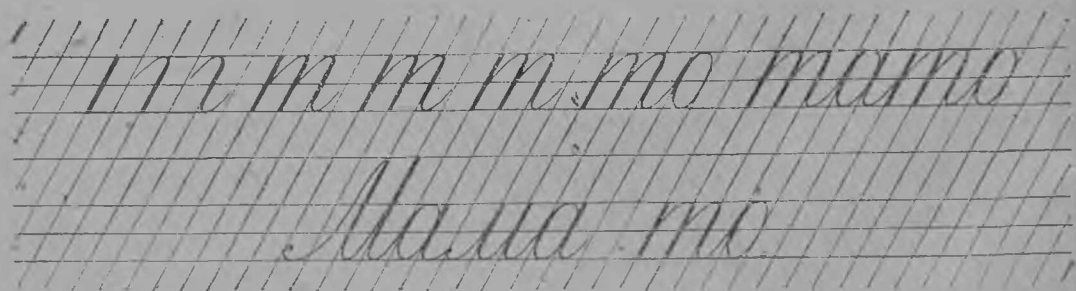 т т т то тато
Мама то